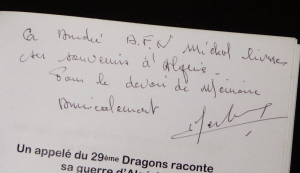 A André A.F.N Michel livres
ces souvenirs d'Algérie
Pour le devoir de Mémoire
Amicalement
Un appelé du 29ème Dragons raconte
sa guerre d'Al